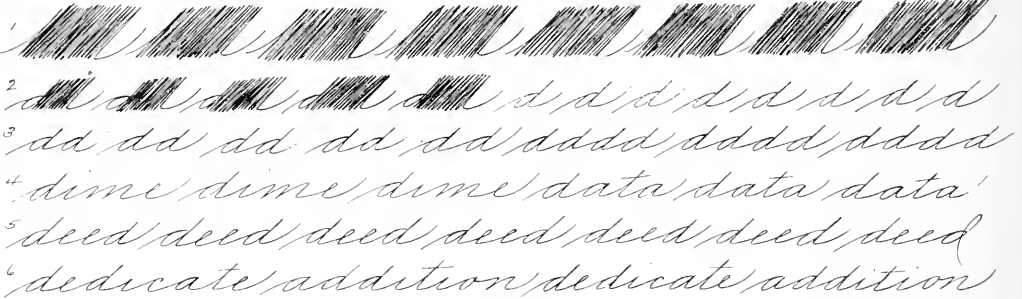 1
2 d d d d d d d d d d d d d
3 dd dd dd dd dd dddd dddd dddd
4 dime dime dime data data data
5 deed deed deed deed deed deed deed
6 dedicate addition dedicate addition